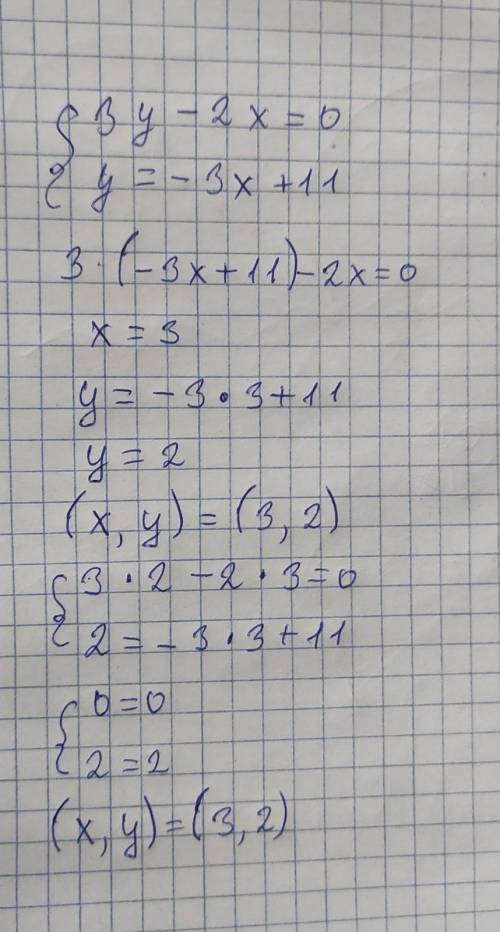 { 3y - 2x = 0
y = -3x + 11
3 · (-3x + 11) - 2x = 0
x = 3
y = -3 · 3 + 11
y = 2
(x, y) = (3, 2)
{ 3 · 2 - 2 · 3 = 0
2 = -3 · 3 + 11
{ 0 = 0
2 = 2
(x, y) = (3, 2)